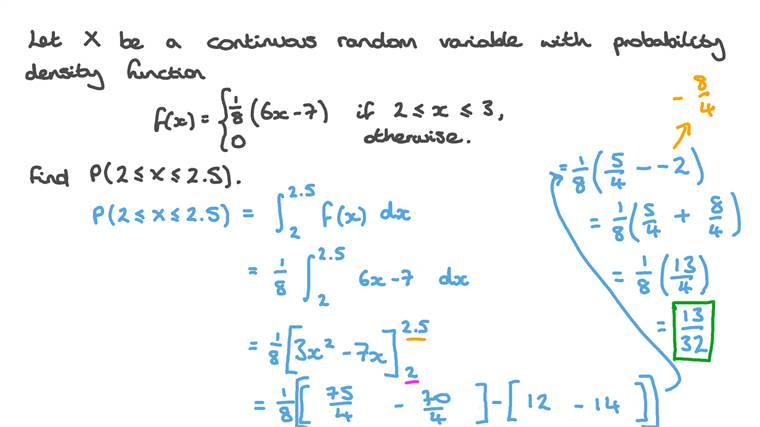 Let X be a continuous random variable with probability
density function
f(x) = { 1/8 (6x-7) if 2 ≤ x ≤ 3,
0 otherwise.
Find P(2 ≤ X ≤ 2.5).
P(2 ≤ X ≤ 2.5) = ∫_2^2.5 f(x) dx
= 1/8 ∫_2^2.5 6x-7 dx
= 1/8 [3x² - 7x]_2^2.5
= 1/8 [[75/4 - 70/4] - [12 - 14]]
- 8/4
= 1/8 (5/4 - -2)
= 1/8 (5/4 + 8/4)
= 1/8 (13/4)
= 13/32